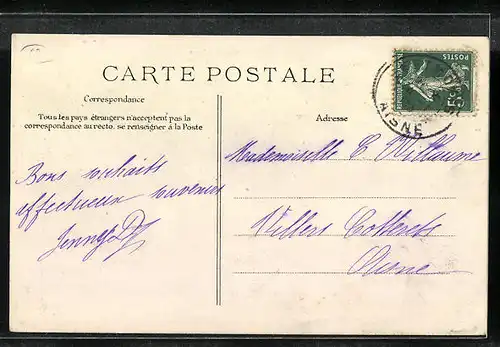 CARTE POSTALE
Correspondance
Tous les pays étrangers n'acceptent pas la
correspondance au recto. se renseigner à la Poste
Adresse
POSTES
5c
AISNE
Bons souhaits
affectueux souvenirs
Jenny
Mademoiselle C Villaume
Villers Cotterets
Aisne